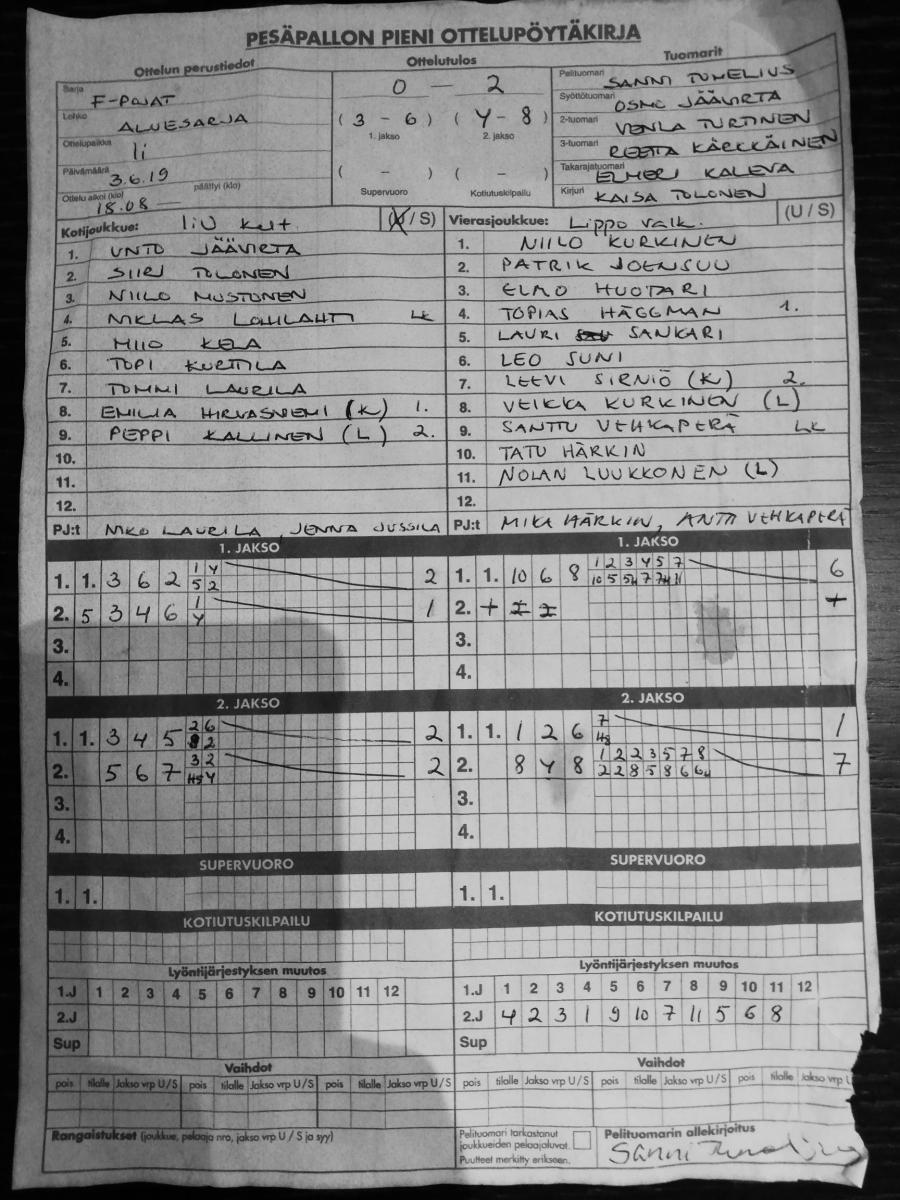 PESÄPALLON PIENI OTTELUPÖYTÄKIRJA
Ottelun perustiedot
Sarja F-POJAT
Lohko ALUESARJA
Ottelupaikka Ii
Päivämäärä 3.6.19
Ottelu alkoi (klo) päättyi (klo)
18.08 —
Ottelutulos
0 — 2
( 3 - 6 ) ( 4 - 8 )
1. jakso 2. jakso
( - ) ( - )
Supervuoro Kotiutuskilpailu
Tuomarit
Pelituomari SANNI TUMELIUS
Syöttötuomari OSMO JÄÄVIRTA
2-tuomari VENLA TURTINEN
3-tuomari REETTA KÄRKKÄINEN
Takarajatuomari ELMERI KALEVA
Kirjuri KAISA TOLONEN
Kotijoukkue: IiU kelt. (U / S)
1. UNTO JÄÄVIRTA
2. SIIRI TOLONEN
3. NIILO MUSTONEN
4. NIKLAS LOHILAHTI LK
5. MIIO KELA
6. TOPI KURTTILA
7. TOMMI LAURILA
8. EMILIA HIRVASNIEMI (K) 1.
9. PEPPI KALLINEN (L) 2.
10.
11.
12.
PJ:t MKO LAURILA, JENNA JUSSILA
Vierasjoukkue: Lippo valk. (U / S)
1. NIILO KURKINEN
2. PATRIK JOENSUU
3. ELMO HUOTARI
4. TOPIAS HÄGGMAN 1.
5. LAURI SANKARI
6. LEO SUNI
7. LEEVI SIRNIÖ (K) 2.
8. VEIKKA KURKINEN (L)
9. SANTTU VEHKAPERÄ LK
10. TATU HÄRKIN
11. NOLAN LUUKKONEN (L)
12.
PJ:t MIKA HÄRKIN, ANTTI VEHKAPERÄ
1. JAKSO
1. 1. 3 6 2 1 4 2
5 2
2. 5 3 4 6 1 1
4
3.
4.
1. JAKSO
1. 1. 10 6 8 1 2 3 4 5 7 6
10 5 7 11
2. + +
3.
4.
2. JAKSO
1. 1. 3 4 5 2 6 2
2
2. 5 6 7 3 2 2
4
3.
4.
2. JAKSO
1. 1. 1 2 6 7 1
2. 8 4 8 1 2 2 3 5 7 8 7
2 2 8 5 8 6
3.
4.
SUPERVUORO
1. 1.
SUPERVUORO
1. 1.
KOTIUTUSKILPAILU
KOTIUTUSKILPAILU
Lyöntijärjestyksen muutos
1.J 1 2 3 4 5 6 7 8 9 10 11 12
2.J
Sup
Lyöntijärjestyksen muutos
1.J 1 2 3 4 5 6 7 8 9 10 11 12
2.J 4 2 3 1 9 10 7 11 5 6 8
Sup
Vaihdot
pois tilalle Jakso vrp U / S pois tilalle Jakso vrp U / S pois tilalle Jakso vrp U / S
Vaihdot
pois tilalle Jakso vrp U / S pois tilalle Jakso vrp U / S pois tilalle Jakso vrp U
Rangaistukset (joukkue, pelaaja nro, jakso vrp U / S ja syy)
Pelituomari tarkastanut
joukkueiden pelaajaluvat.
Puutteet merkitty erikseen.
Pelituomarin allekirjoitus
Sanni